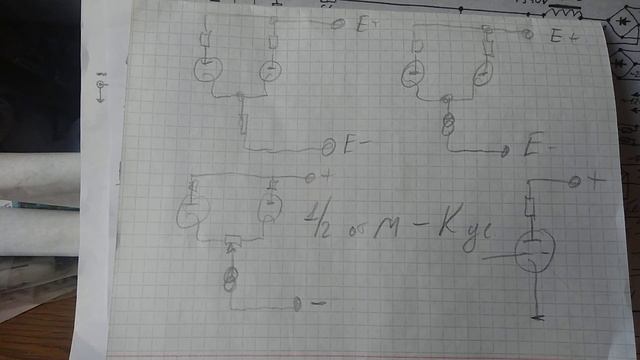 E+
E+
E-
E-
+
+
1/2 от М - Кус
-